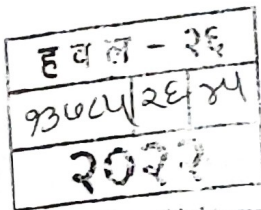 ह व ल - २६
१३७८५ २६ ४५
२०२२